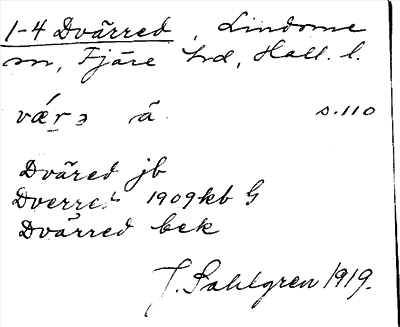 1-4 Dvärred, Lindome
sn, Fjäre hd, Hall. l.
vǽr̠ə ä s.110
Dväred jb
1909 kb G
Dvärred bek
J. Sahlgren 1919.